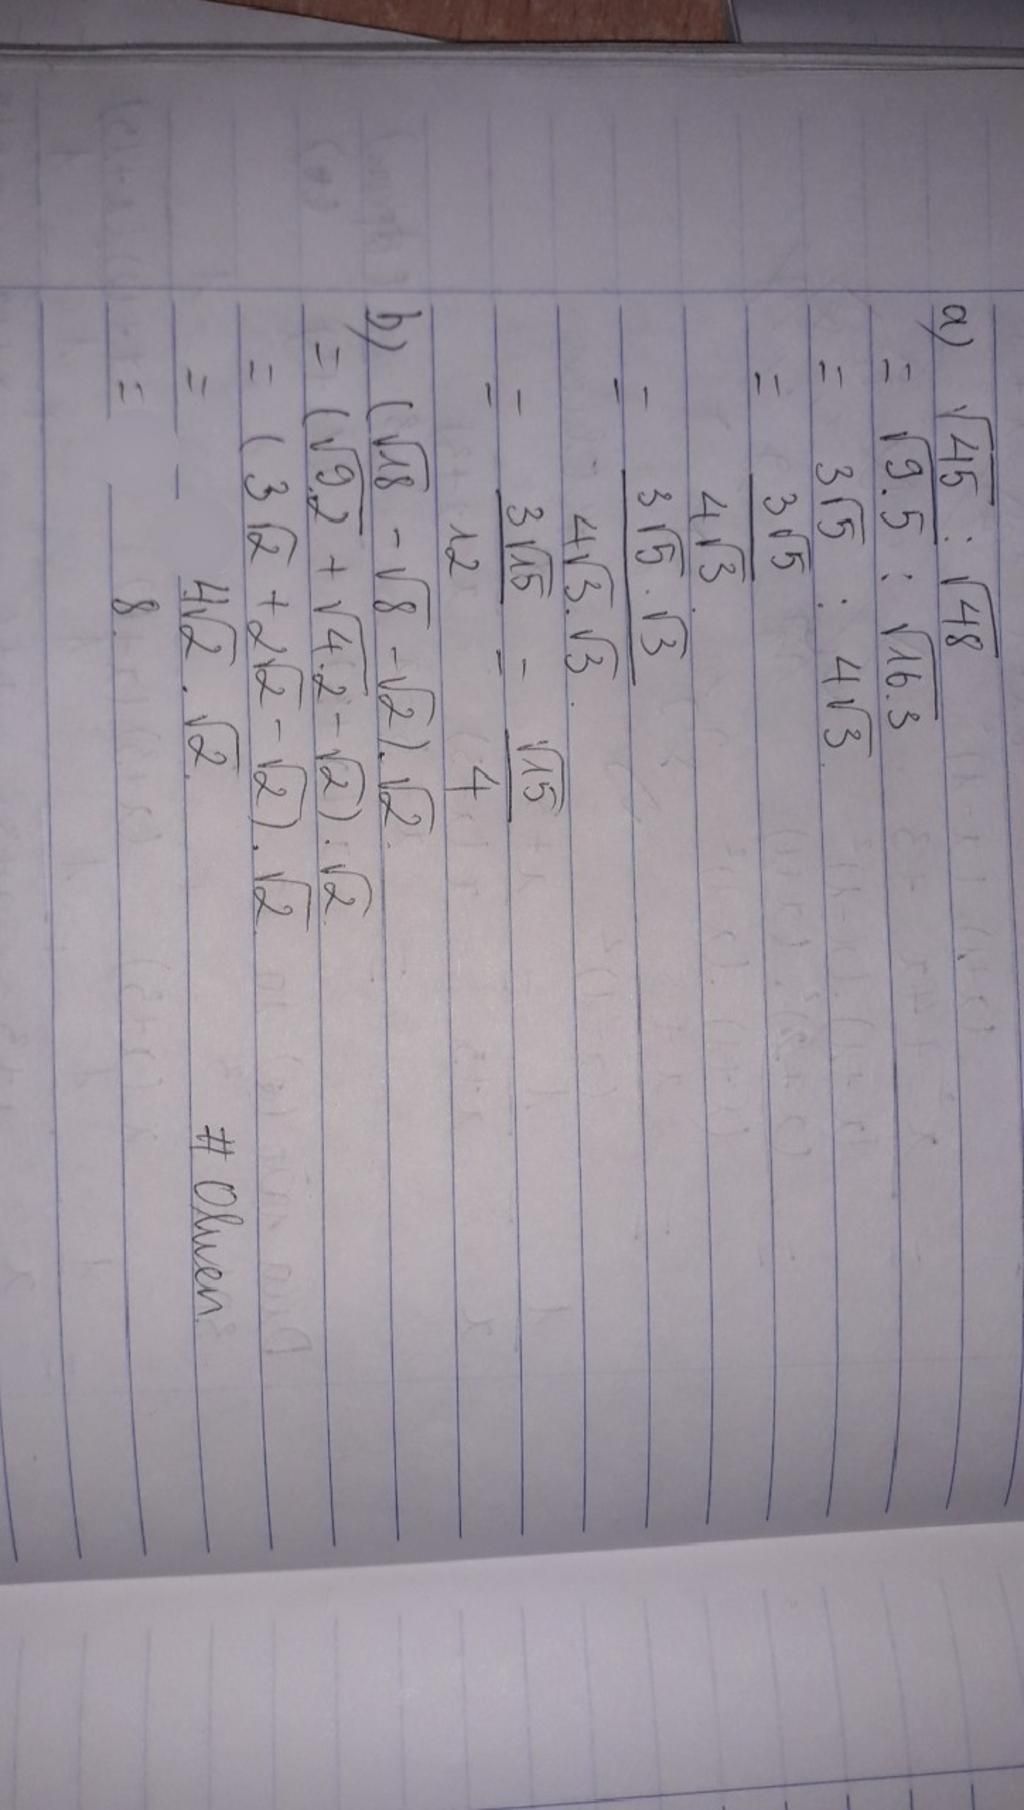 a) √45 : √48
= √9.5 : √16.3
= 3√5 : 4√3
= 3√5 / 4√3
= 3√5.√3 / 4√3.√3
= 3√15 / 12 = √15 / 4
b) (√18 - √8 - √2).√2
= (√9.2 + √4.2 - √2).√2
= (3√2 + 2√2 - √2).√2
= 4√2.√2
= 8.
# Olwen